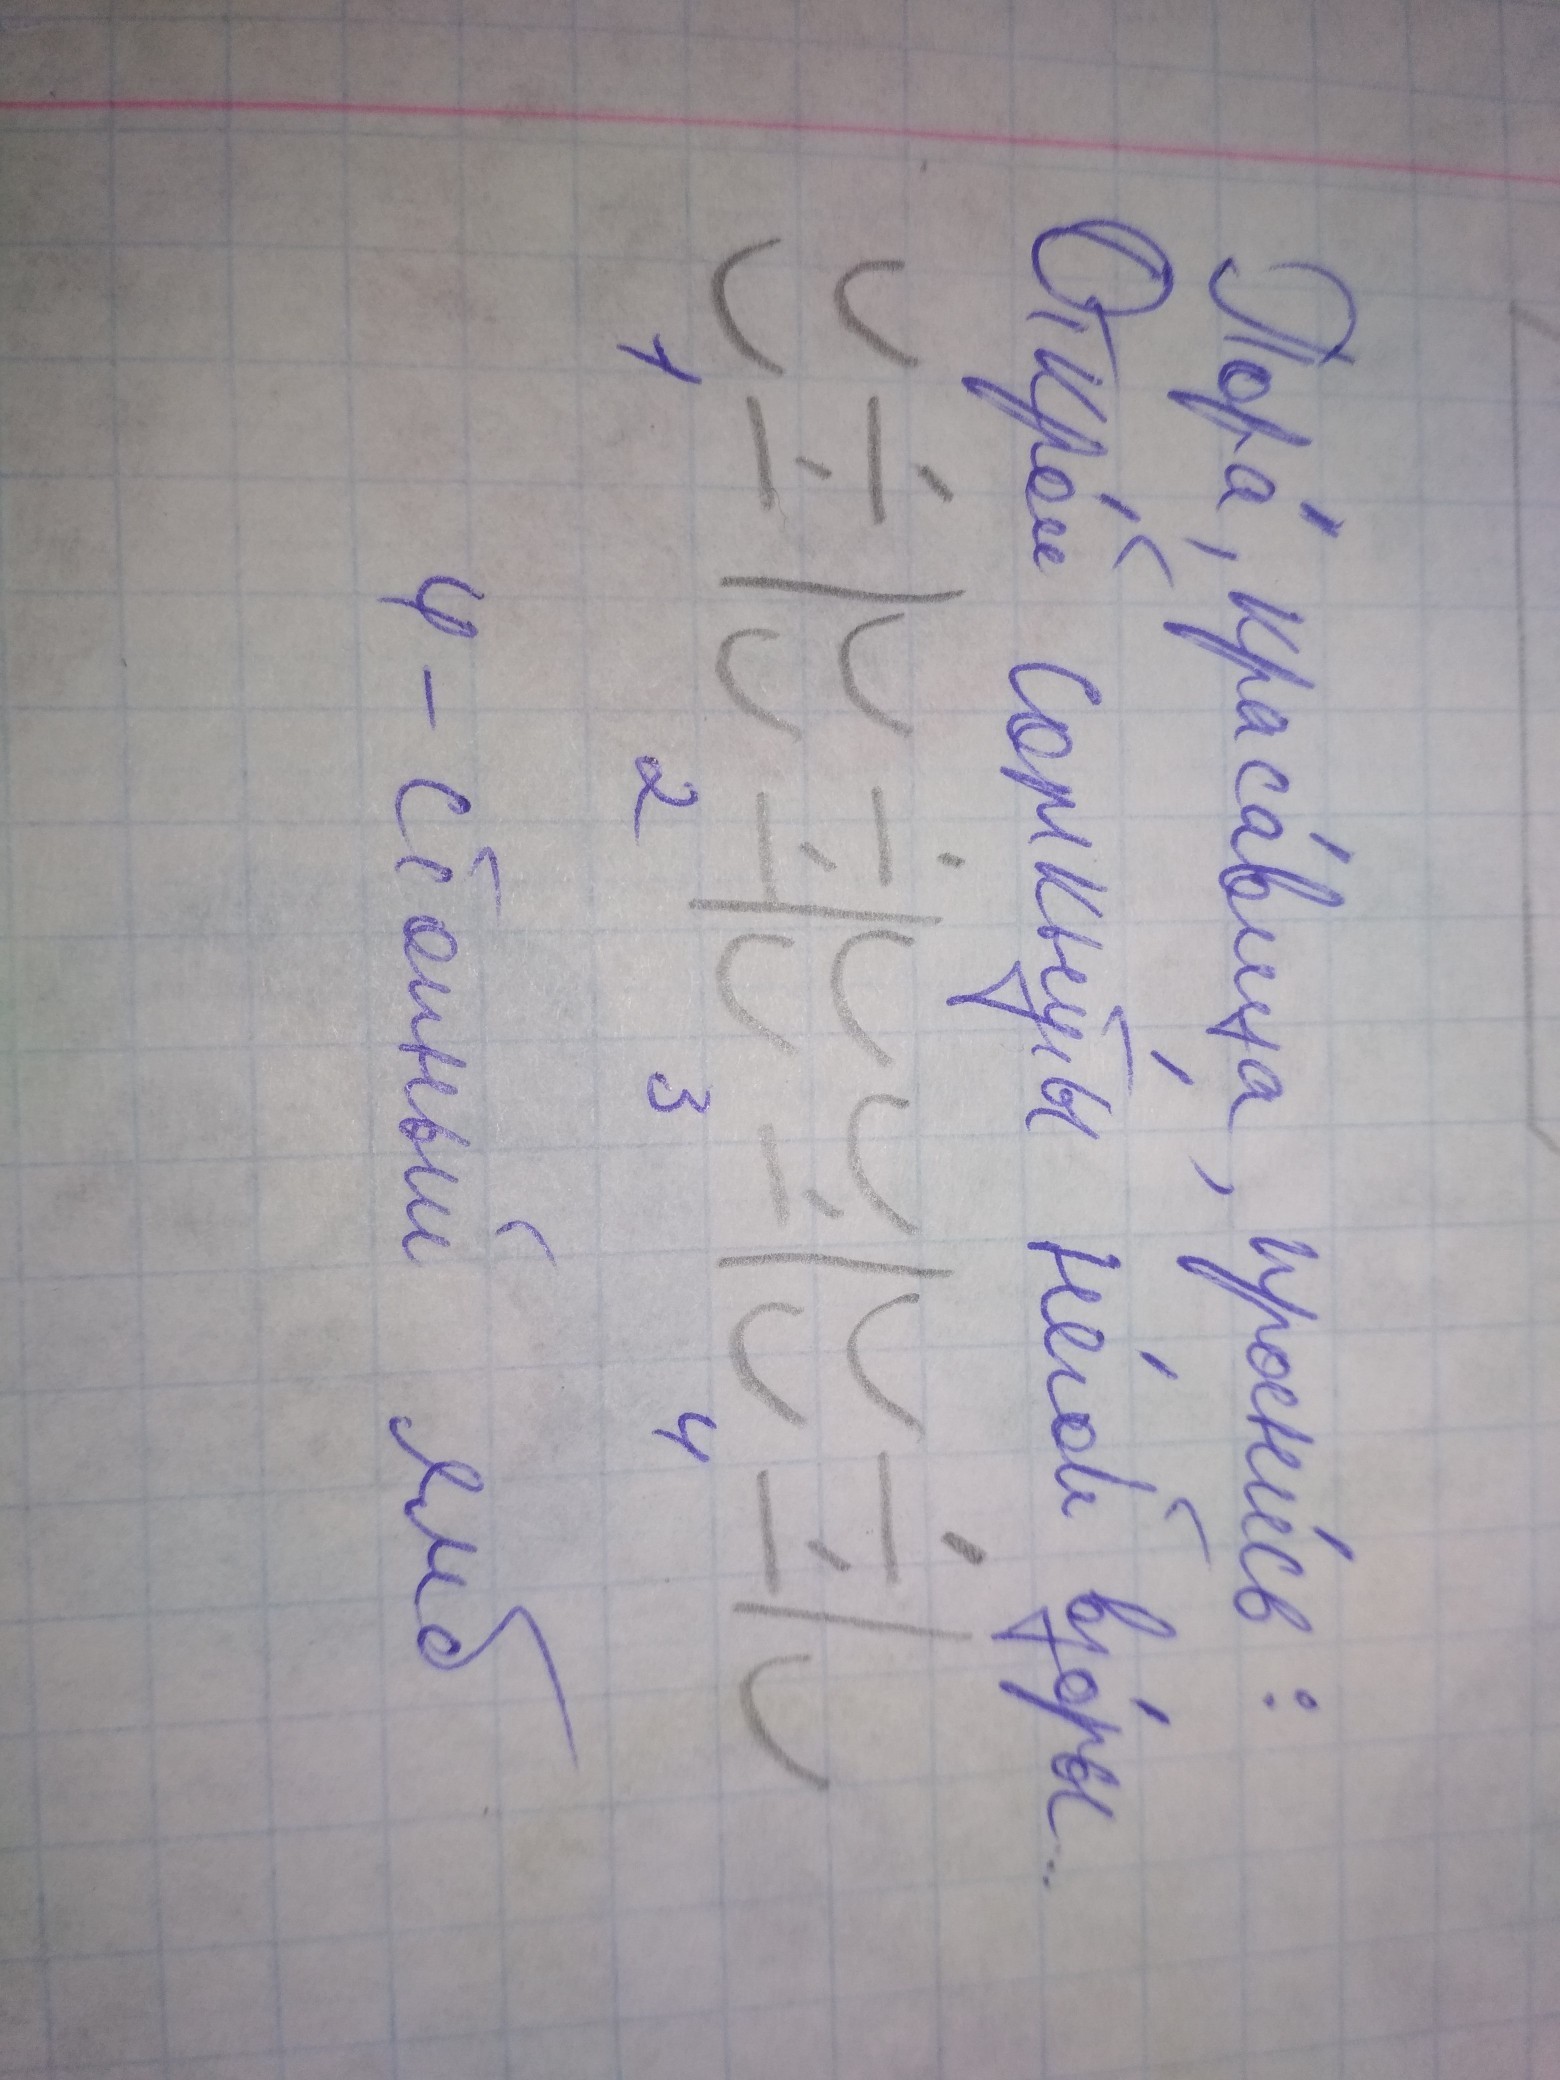 Пора́, краса́вица, просни́сь:
Откро́й сомкнуты́ не́гой взо́ры...
∪ —́ | ∪ —́ | ∪ ∪ | ∪ —́ |
∪ —́ | ∪ —́ | ∪ —́ | ∪ —́ | ∪
1 2 3 4
4-стопный ямб